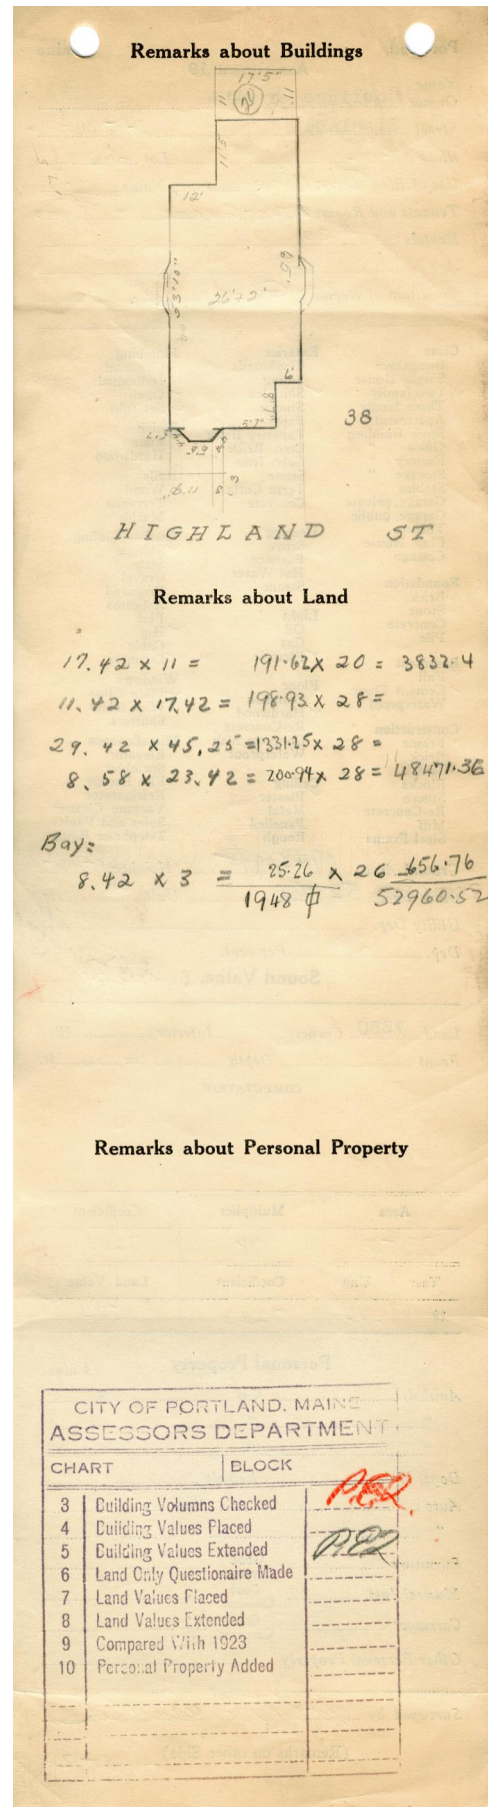 Remarks about Buildings
17'5"
11' 20 11'
11'5
12'
53'10" 26'+2' 65'
6'
38
HIGHLAND ST
Remarks about Land
17.42 x 11 = 191.62 x 20 = 3832.4
11.42 x 17.42 = 198.93 x 28 =
29.42 x 45.25 = 1331.25 x 28 =
8.58 x 23.42 = 200.94 x 28 = 48471.36
Bay:
8.42 x 3 = 25.26 x 26 656.76
1948 52960.52
Remarks about Personal Property
CITY OF PORTLAND, MAINE
ASSESSORS DEPARTMENT
CHART BLOCK
3 Building Volumns Checked
4 Building Values Placed
5 Building Values Extended
6 Land Only Questionaire Made
7 Land Values Placed
8 Land Values Extended
9 Compared With 1923
10 Personal Property Added